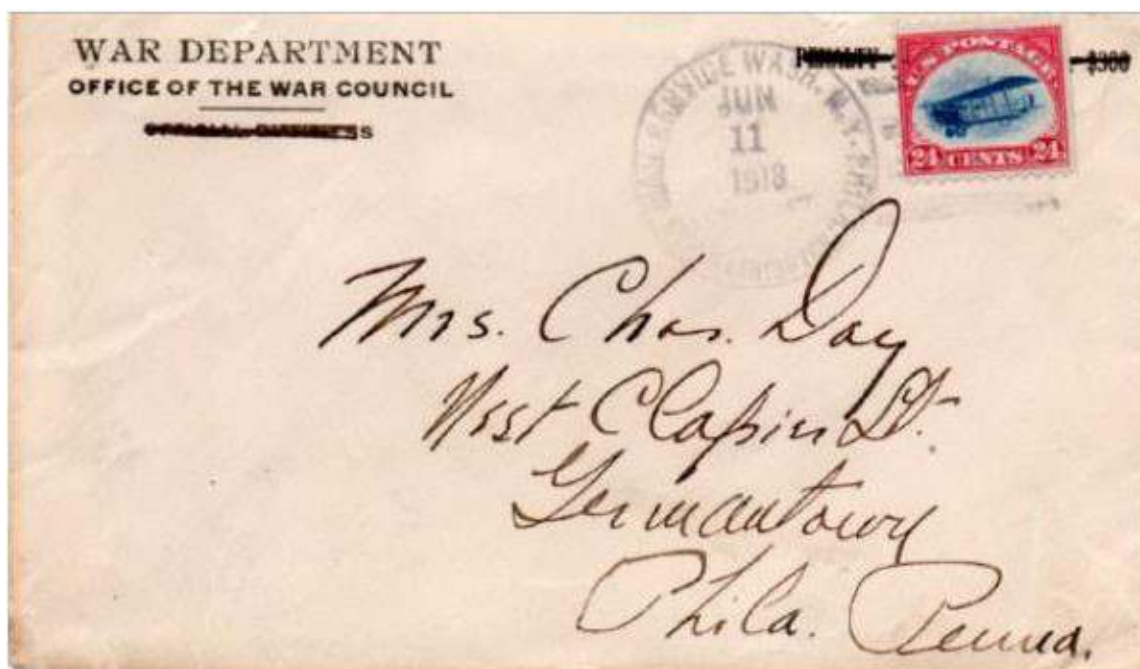 WAR DEPARTMENT
OFFICE OF THE WAR COUNCIL
OFFICIAL BUSINESS
PENALTY $300
U.S. POSTAGE
24 CENTS 24
SERVICE WASH. N.Y. PHILA
JUN
11
1918
Mrs. Chas. Day
West Clapier St.
Germantown
Phila. Penna.